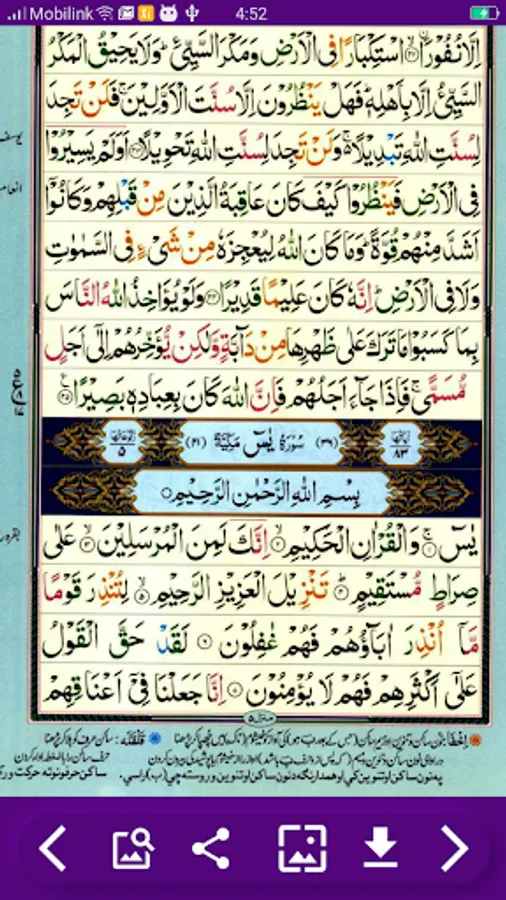 Mobilink 4:52
اِلَّا نُفُوْرَا۝ۙ۴۲ اسْتِكْبَارًا فِى الْاَرْضِ وَمَكْرَ السَّيِّئِ ؕ وَلَا يَحِيْقُ الْمَكْرُ
السَّيِّئُ اِلَّا بِاَهْلِهٖ ؕ فَهَلْ يَنْظُرُوْنَ اِلَّا سُنَّتَ الْاَوَّلِيْنَ ۚ فَلَنْ تَجِدَ
لِسُنَّتِ اللّٰهِ تَبْدِيْلًا ۚ۬ وَلَنْ تَجِدَ لِسُنَّتِ اللّٰهِ تَحْوِيْلًا۝۴۳ اَوَلَمْ يَسِيْرُوْا
فِى الْاَرْضِ فَيَنْظُرُوْا كَيْفَ كَانَ عَاقِبَةُ الَّذِيْنَ مِنْ قَبْلِهِمْ وَكَانُوْۤا
اَشَدَّ مِنْهُمْ قُوَّةً ؕ وَمَا كَانَ اللّٰهُ لِيُعْجِزَهٗ مِنْ شَىْءٍ فِى السَّمٰوٰتِ
وَلَا فِى الْاَرْضِ ؕ اِنَّهٗ كَانَ عَلِيْمًا قَدِيْرًا۝۴۴ وَلَوْ يُؤَاخِذُ اللّٰهُ النَّاسَ
بِمَا كَسَبُوْا مَا تَرَكَ عَلٰى ظَهْرِهَا مِنْ دَآبَّةٍ وَّلٰكِنْ يُّؤَخِّرُهُمْ اِلٰٓى اَجَلٍ
مُّسَمًّى ۚ فَاِذَا جَآءَ اَجَلُهُمْ فَاِنَّ اللّٰهَ كَانَ بِعِبَادِهٖ بَصِيْرًا۝۴۵
اٰيَاتُهَا ۸۳ (۳۶) سُوْرَةُ يٰسٓ مَكِّيَّةٌ (۴۱) رُكُوْعَاتُهَا ۵
بِسْمِ اللّٰهِ الرَّحْمٰنِ الرَّحِيْمِ۝
يٰسٓ۝ۚ۱ وَالْقُرْاٰنِ الْحَكِيْمِ۝ۙ۲ اِنَّكَ لَمِنَ الْمُرْسَلِيْنَ۝ۙ۳ عَلٰى
صِرَاطٍ مُّسْتَقِيْمٍ۝ؕ۴ تَنْزِيْلَ الْعَزِيْزِ الرَّحِيْمِ۝ۙ۵ لِتُنْذِرَ قَوْمًا
مَّاۤ اُنْذِرَ اٰبَآؤُهُمْ فَهُمْ غٰفِلُوْنَ۝۶ لَقَدْ حَقَّ الْقَوْلُ
عَلٰٓى اَكْثَرِهِمْ فَهُمْ لَا يُؤْمِنُوْنَ۝۷ اِنَّا جَعَلْنَا فِىْۤ اَعْنَاقِهِمْ
منزل ۵